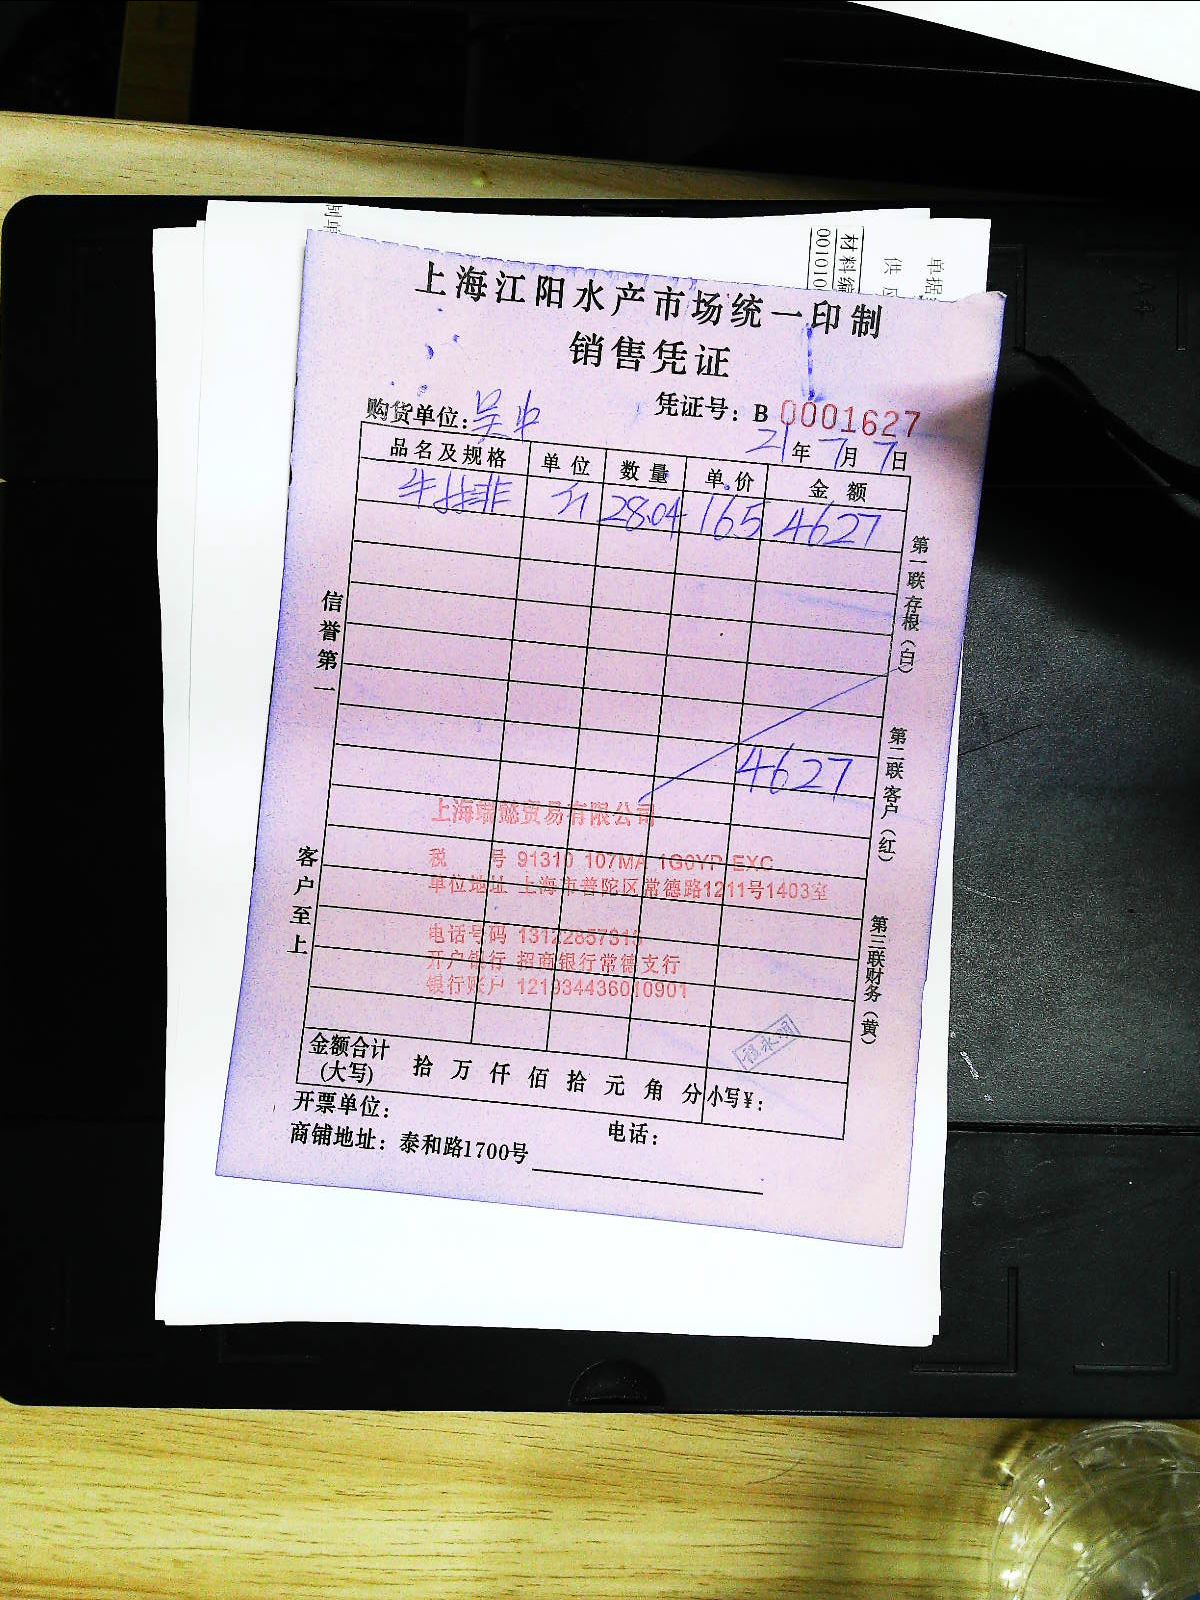 上海江阳水产市场统一印制
销售凭证
购货单位:吴中
凭证号: B 0001627
21年7月7日
品名及规格 单位 数量 单价 金额
牛排 斤 28.04 165 4627
4627
信誉第一
客户至上
第一联存根(白)
第二联客户(红)
第三联财务(黄)
上海瑞懿贸易有限公司
税 号 91310 107MA 1G0YP EXC
单位地址 上海市普陀区常德路1211号1403室
电话号码 13122857315
开户银行 招商银行常德支行
银行账户 121934436010901
程永明
金额合计
(大写) 拾 万 仟 佰 拾 元 角 分 小写¥:
开票单位: 电话:
商铺地址: 泰和路1700号
材料编
001010
单据
供应